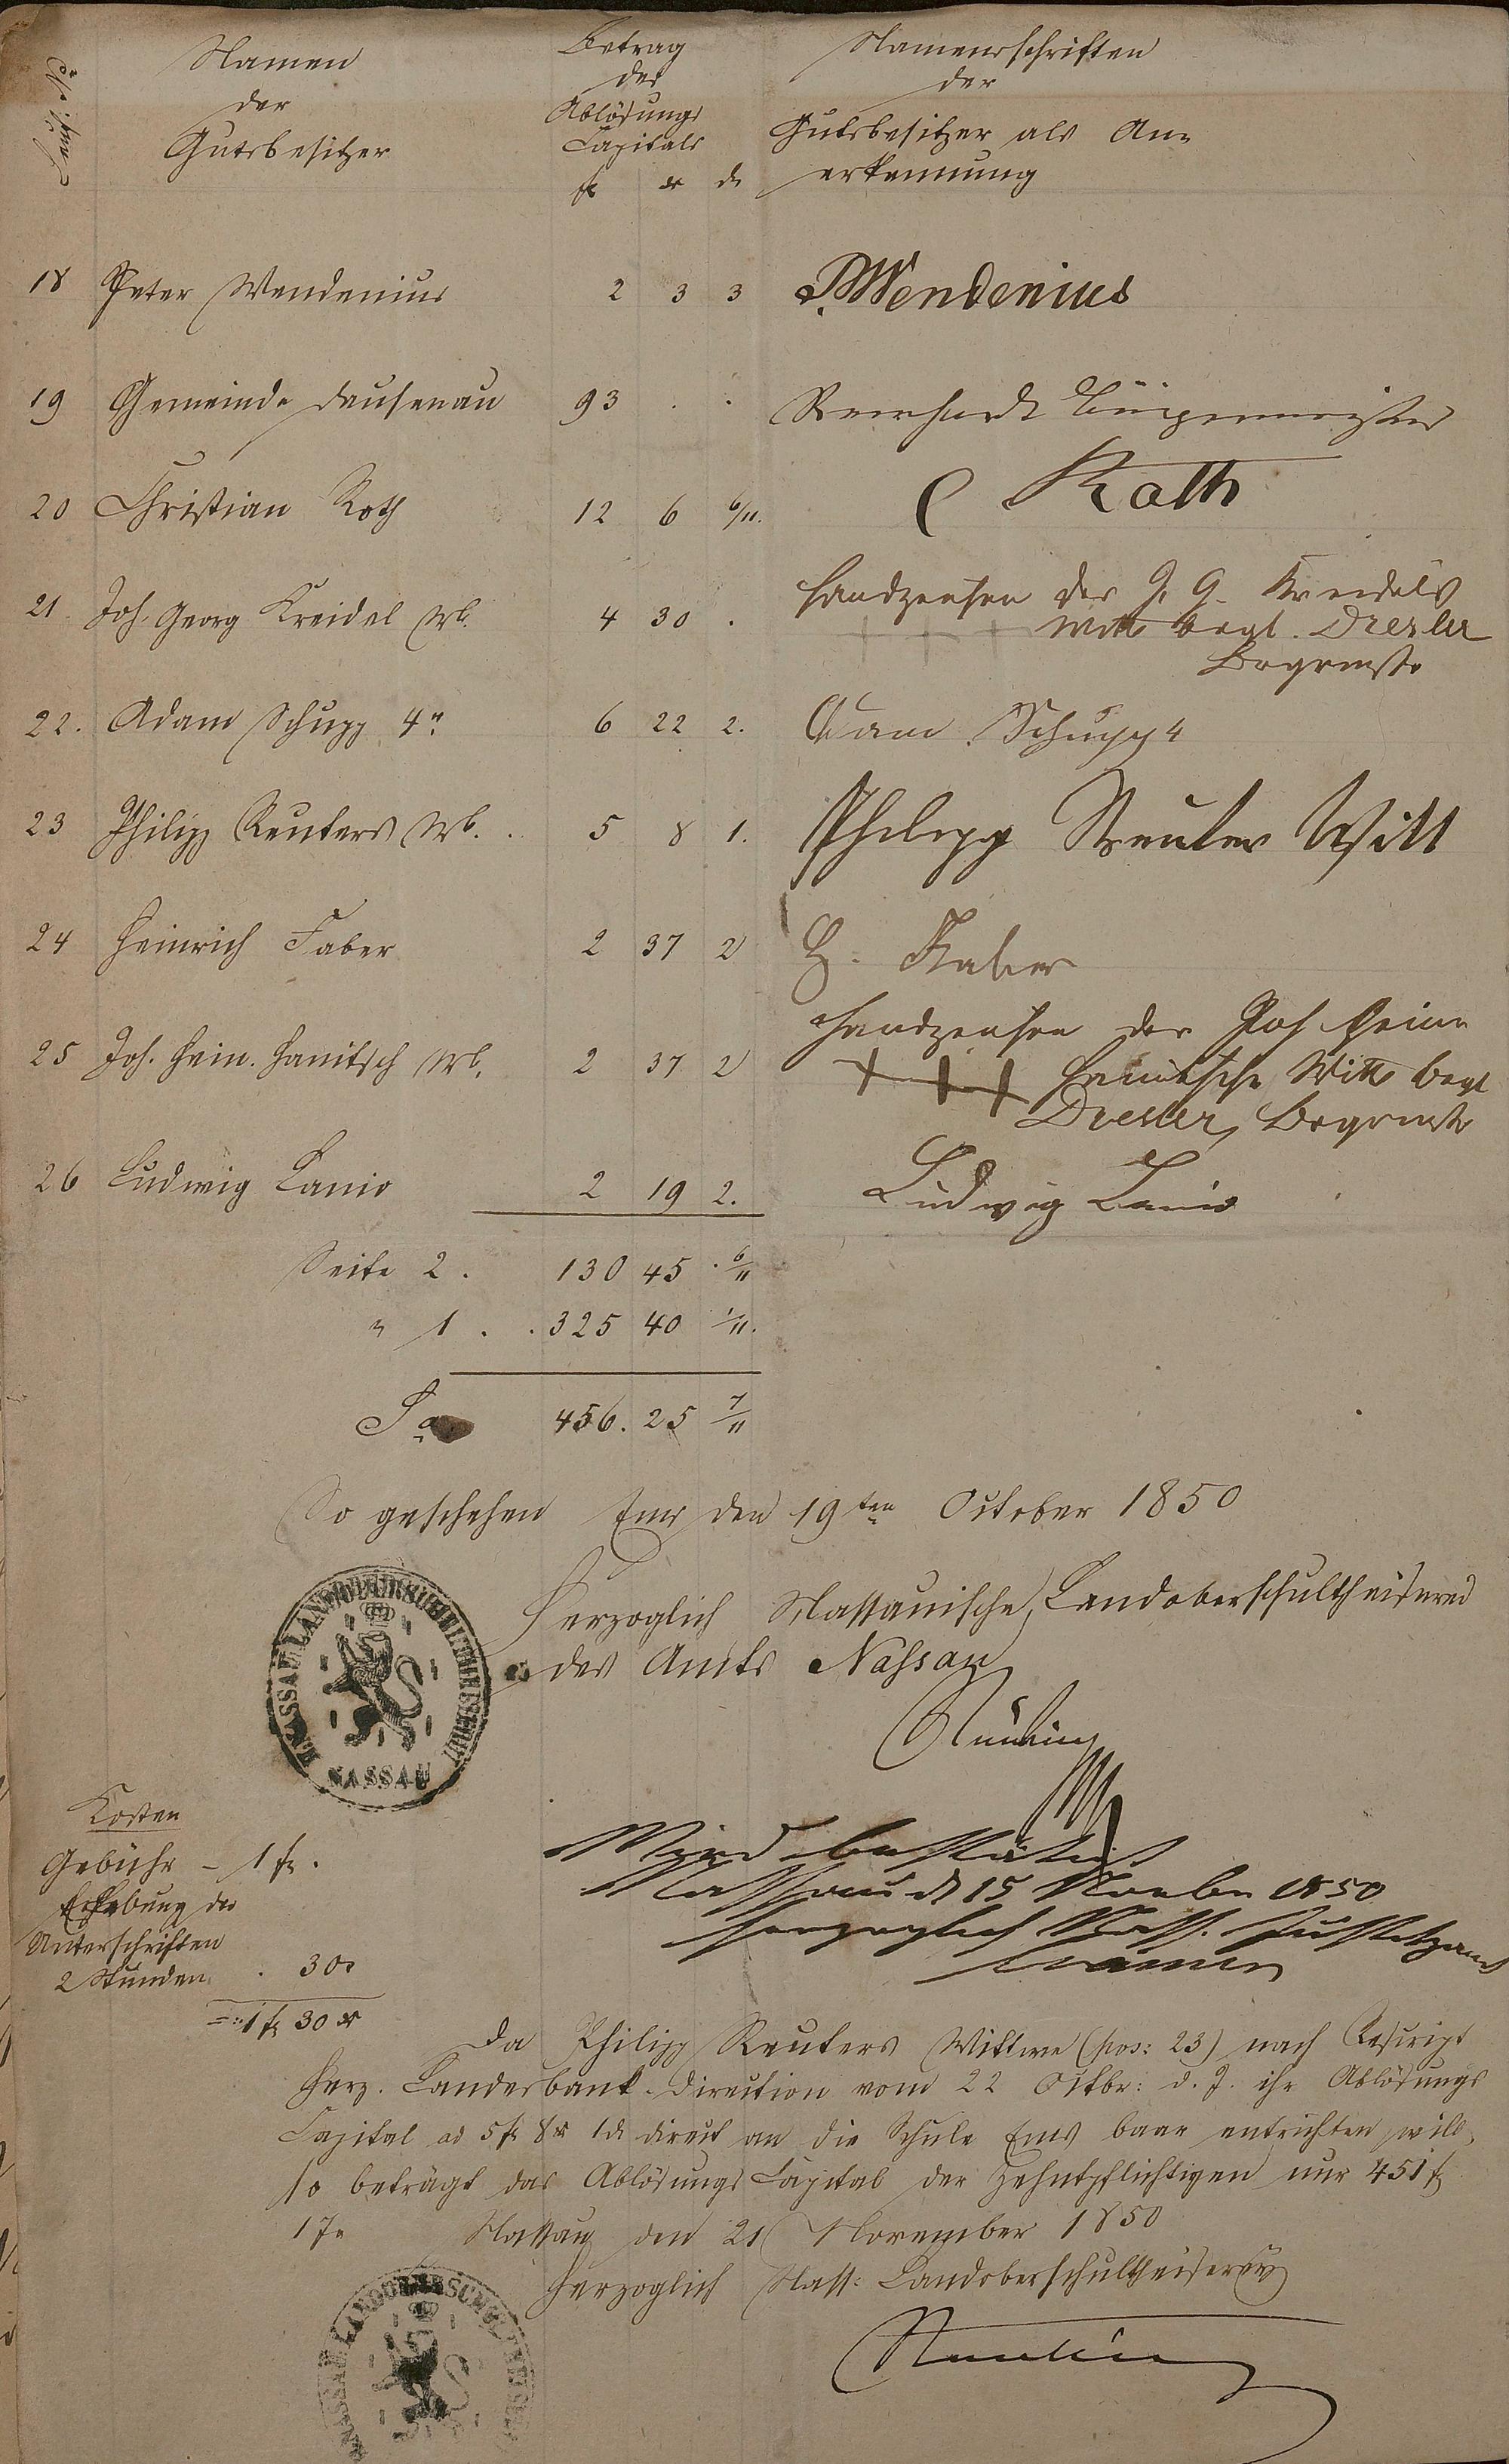 Namen
der
Gutsbesitzer
Betrag
des
Ablösungs
Capitals
fl xr d
Namensschriften
der
Gutsbesitzer als An-
erkennung
18 Peter Wendenius 2 3 3 P. Wendenius
19 Gemeinde Dausenau 93 . . Reinhardt Bürgermeister
20 Christian Roth 12 6 6/11. C Roth
21 Joh. Georg Kreidel Wb. 4 30 . Handzeichen der J. G. Kreidels
+ + + Witt begl. Dresler
22. Adam Schupp 4r. 6 22 2. Adam Schupp 4
23 Philipp Reuters Wb. . 5 8 1. Philipp Reuter Witt
24 Heinrich Faber 2 37 2 H. Faber
Handzeichen der Joh Heinr
25 Joh. Hein. Hanitsch Wb. 2 37 2 + + + Hanitsche Witt begl
Dresler
26 Ludwig Lanio 2 19 2. Ludwig Lanio
Seite 2 . 130 45 . 6/11
" 1 . . 325 40 1/11.
Sa 456. 25 7/11
So geschehen Ems den 19ten October 1850
Herzoglich Nassauische Landoberschultheiserei
des Amts Nassau
NASSAU
Wird bestätigt
Nassau d 15 Novbr 1850
Herzoglich Nass. Justizamt
Kosten
Gebühr – 1 fl.
Erhebung der
Unterschriften
2 Stunden . 30
= 1 fl 30 xr
Da Philipp Reuters Wittwe (pos: 23) nach Rescript
Herz. Landesbank-Direction vom 22 Octbr: d. J. ihr Ablösungs
Capital ad 5 fl 8 xr 1 d direct an die Schule Ems baar entrichten will,
so beträgt das Ablösungs Capital der Zehntpflichtigen nur 451 fl
17
Nassau den 21 November 1850
Herzoglich Nass: Landoberschultheiserey